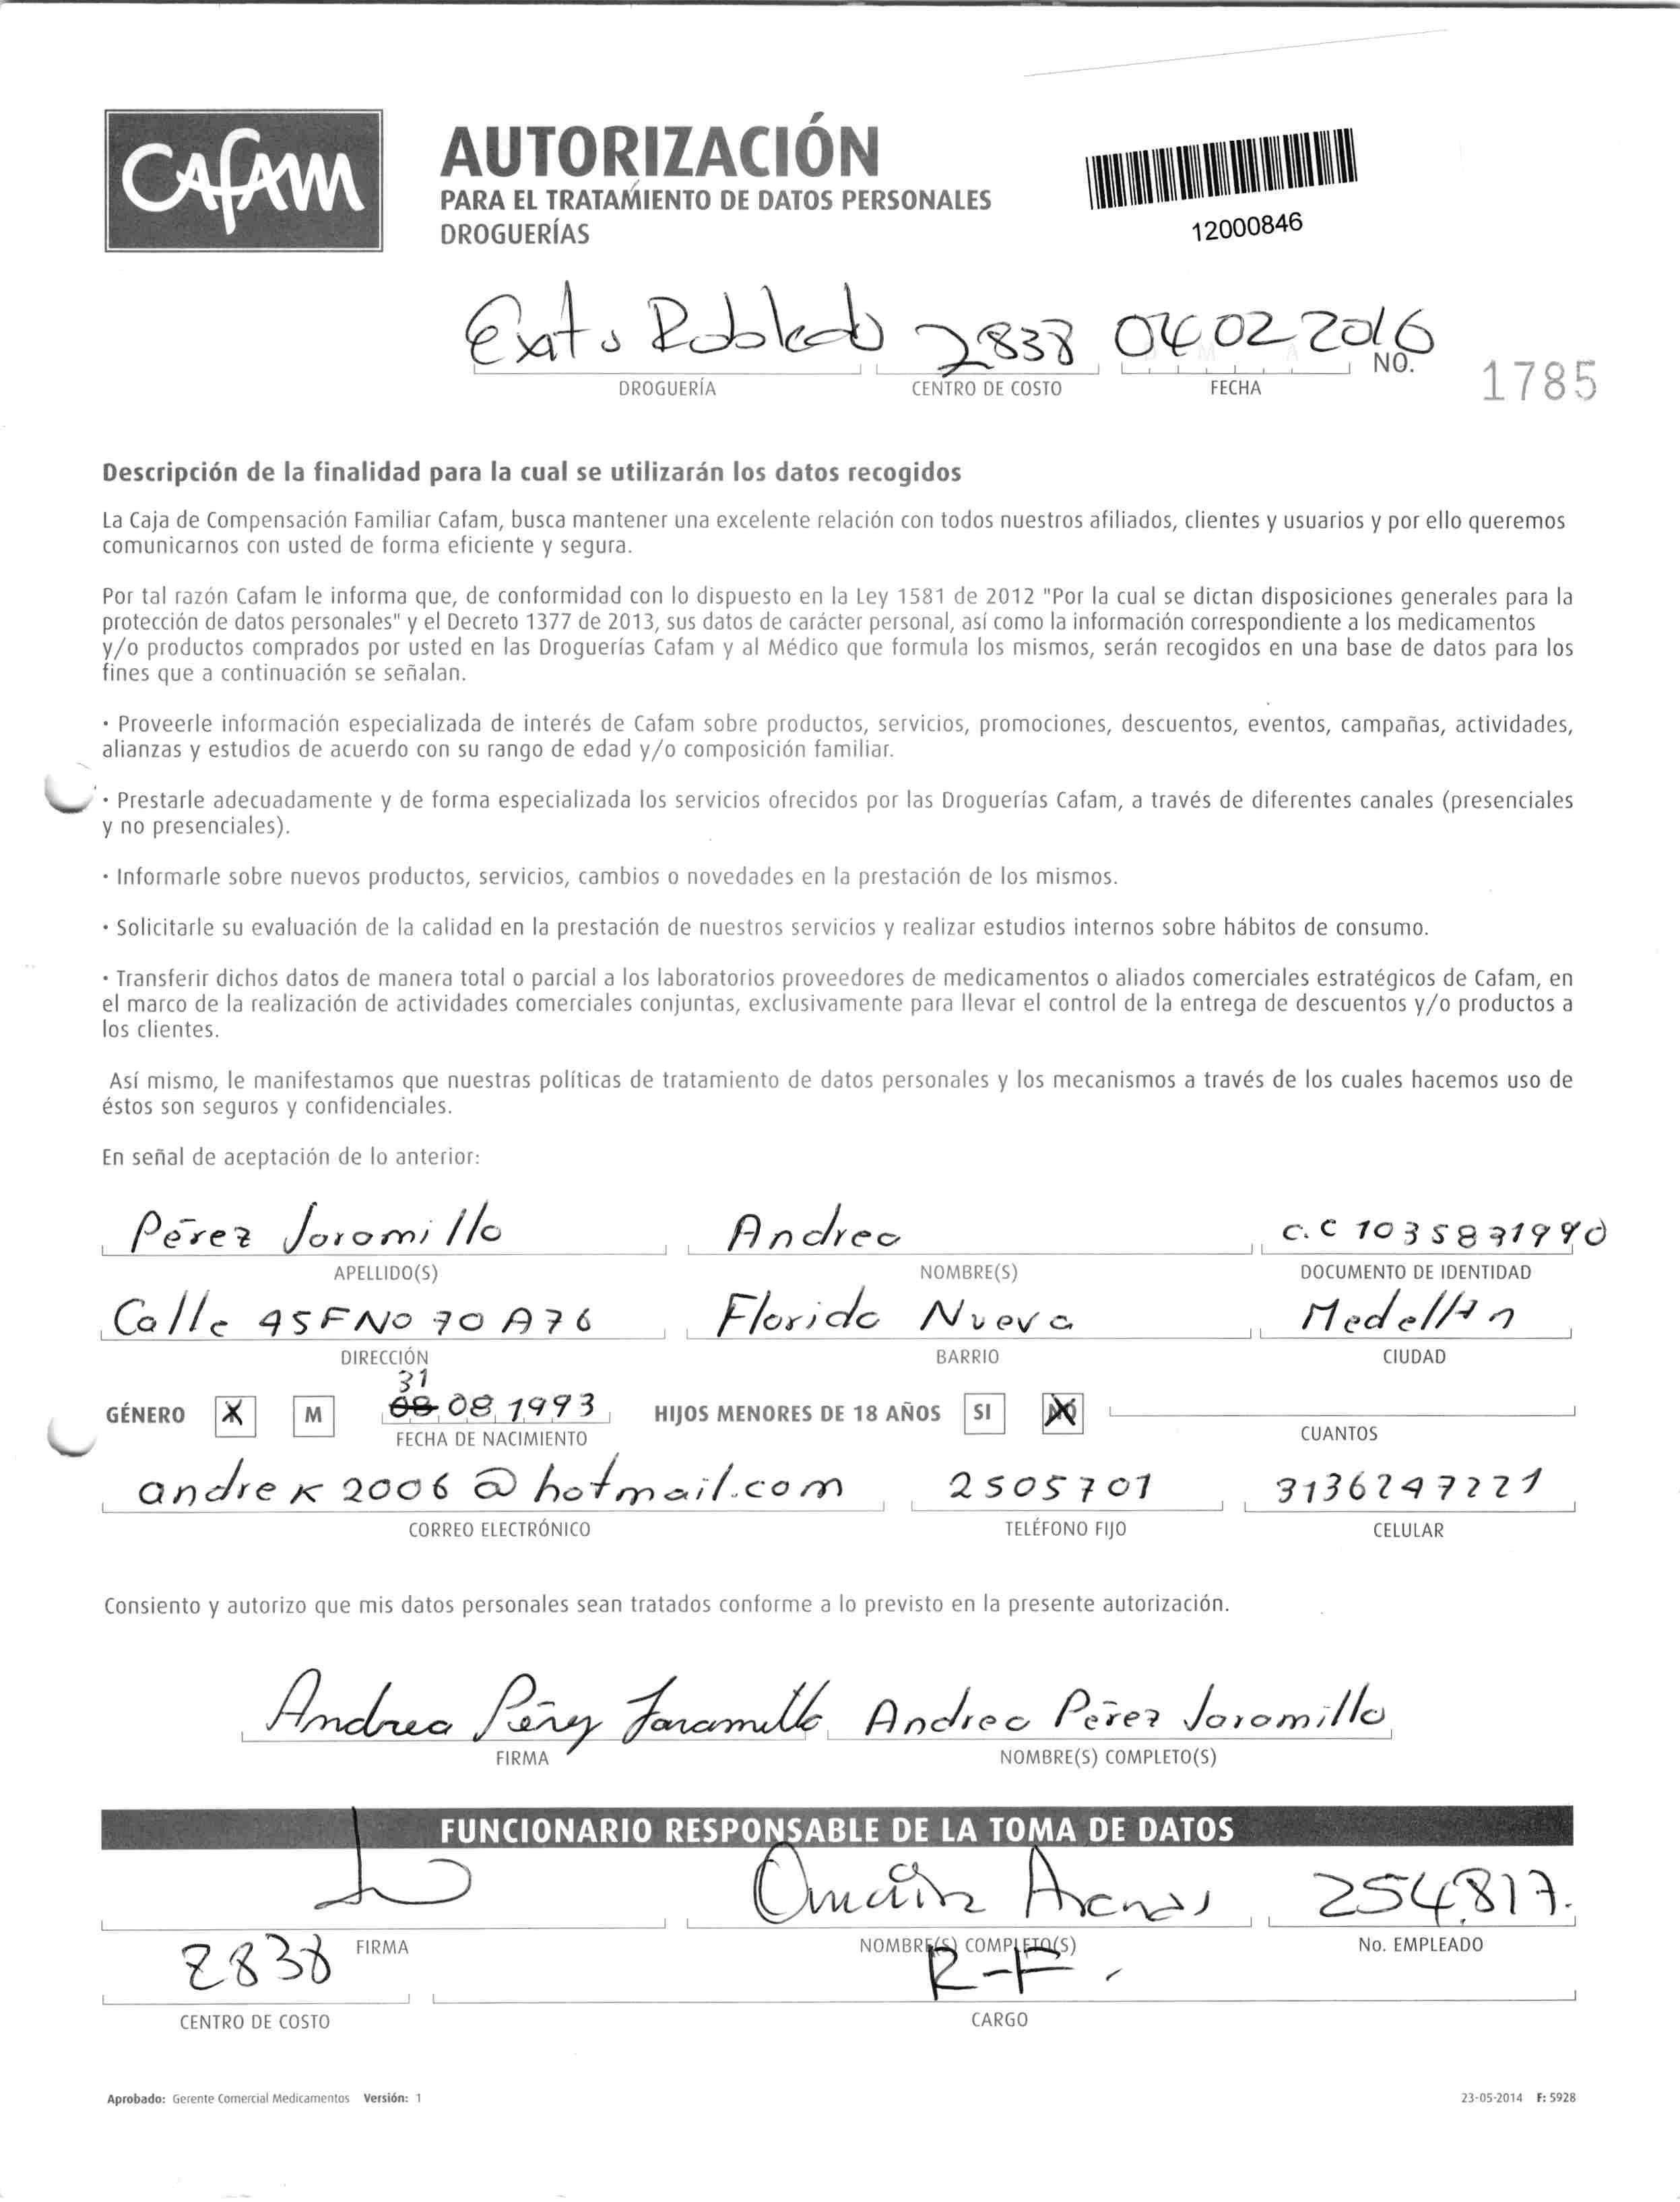 Cafam
AUTORIZACIÓN
PARA EL TRATAMIENTO DE DATOS PERSONALES
DROGUERÍAS
12000846
Exito Robledo 2838 04 02 2016
NO. 1785
DROGUERÍA CENTRO DE COSTO FECHA
Descripción de la finalidad para la cual se utilizarán los datos recogidos
La Caja de Compensación Familiar Cafam, busca mantener una excelente relación con todos nuestros afiliados, clientes y usuarios y por ello queremos
comunicarnos con usted de forma eficiente y segura.
Por tal razón Cafam le informa que, de conformidad con lo dispuesto en la Ley 1581 de 2012 "Por la cual se dictan disposiciones generales para la
protección de datos personales" y el Decreto 1377 de 2013, sus datos de carácter personal, así como la información correspondiente a los medicamentos
y/o productos comprados por usted en las Droguerías Cafam y al Médico que formula los mismos, serán recogidos en una base de datos para los
fines que a continuación se señalan.
· Proveerle información especializada de interés de Cafam sobre productos, servicios, promociones, descuentos, eventos, campañas, actividades,
alianzas y estudios de acuerdo con su rango de edad y/o composición familiar.
· Prestarle adecuadamente y de forma especializada los servicios ofrecidos por las Droguerías Cafam, a través de diferentes canales (presenciales
y no presenciales).
· Informarle sobre nuevos productos, servicios, cambios o novedades en la prestación de los mismos.
· Solicitarle su evaluación de la calidad en la prestación de nuestros servicios y realizar estudios internos sobre hábitos de consumo.
· Transferir dichos datos de manera total o parcial a los laboratorios proveedores de medicamentos o aliados comerciales estratégicos de Cafam, en
el marco de la realización de actividades comerciales conjuntas, exclusivamente para llevar el control de la entrega de descuentos y/o productos a
los clientes.
Así mismo, le manifestamos que nuestras políticas de tratamiento de datos personales y los mecanismos a través de los cuales hacemos uso de
éstos son seguros y confidenciales.
En señal de aceptación de lo anterior:
Pérez Jaramillo Andrea c.c
APELLIDO(S) NOMBRE(S) DOCUMENTO DE IDENTIDAD
Calle 45F No 70 A 76 Florida Nueva Medellín
DIRECCIÓN BARRIO CIUDAD
31
GÉNERO X M 08 08 1993 HIJOS MENORES DE 18 AÑOS SI NO
FECHA DE NACIMIENTO CUANTOS
andrek2006@hotmail.com 2505701 3136247221
CORREO ELECTRÓNICO TELÉFONO FIJO CELULAR
Consiento y autorizo que mis datos personales sean tratados conforme a lo previsto en la presente autorización.
Andrea Pérez Jaramillo Andrea Pérez Jaramillo
FIRMA NOMBRE(S) COMPLETO(S)
FUNCIONARIO RESPONSABLE DE LA TOMA DE DATOS
Omaira Arenas 254817.
FIRMA NOMBRE(S) COMPLETO(S) No. EMPLEADO
2838 R-F.
CENTRO DE COSTO CARGO
Aprobado: Gerente Comercial Medicamentos Versión: 1 23-05-2014 F: 5928